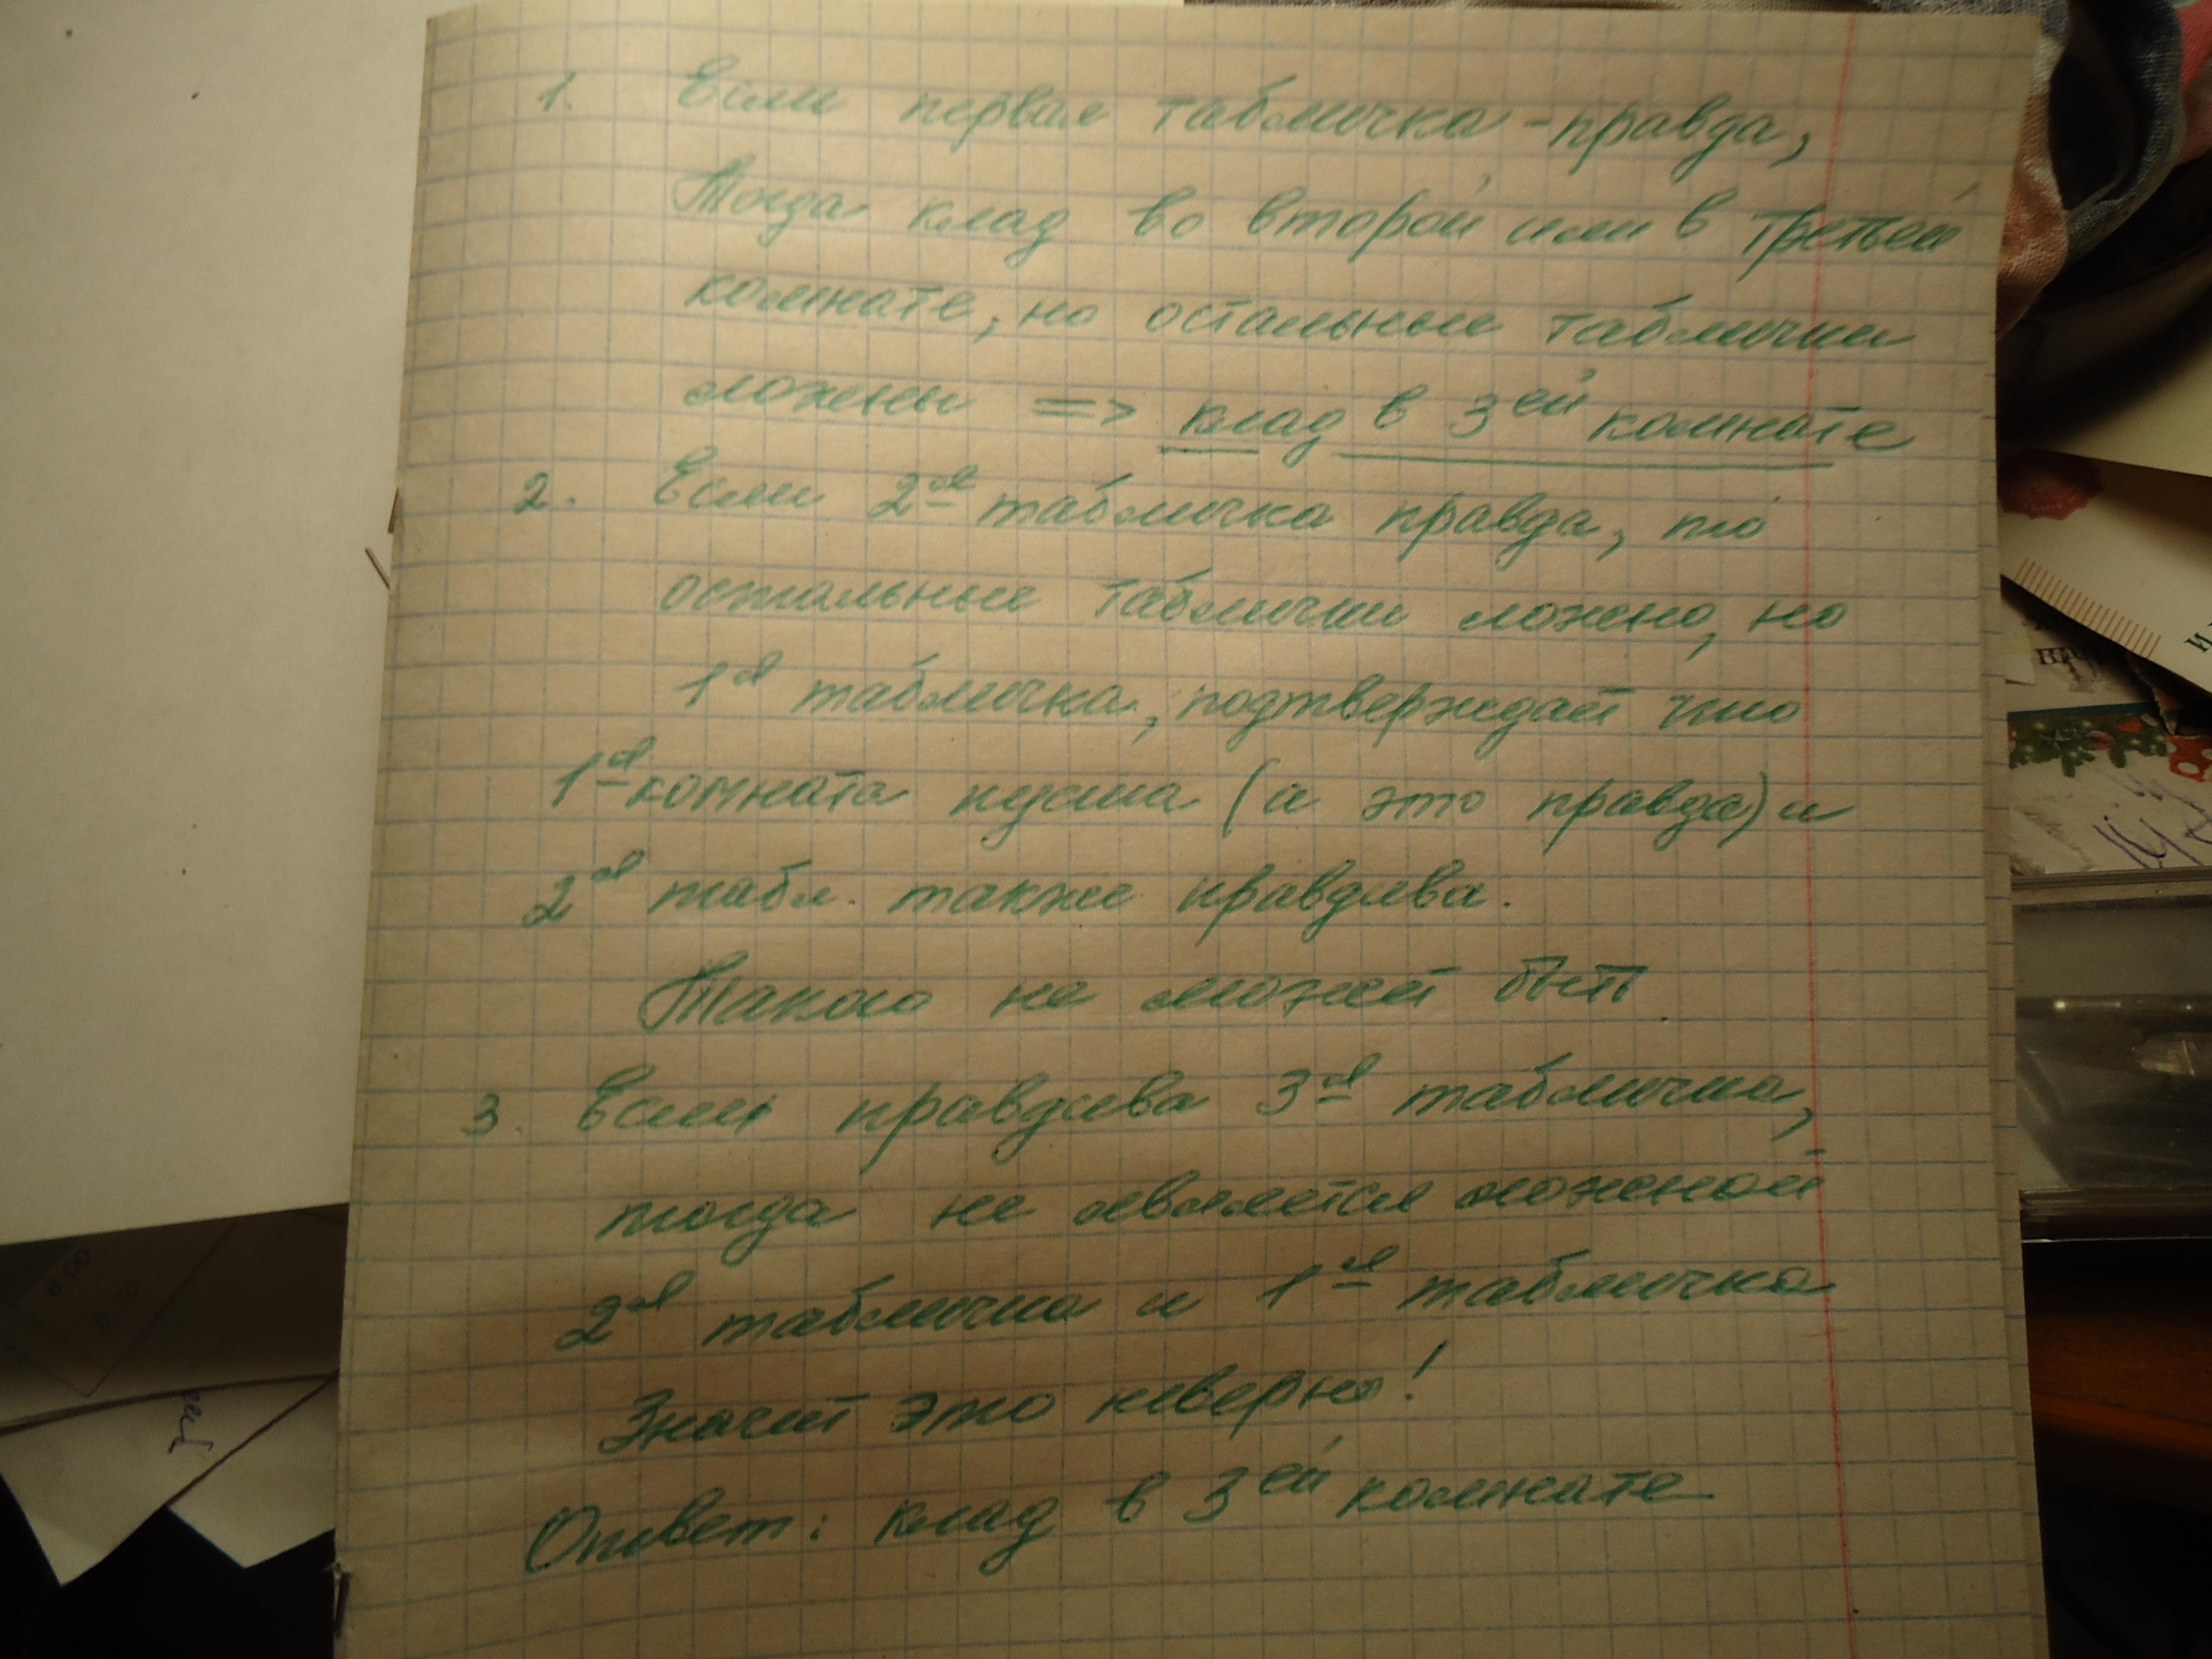 1. Если первая табличка - правда,
Тогда клад во второй или в третьей
комнате, но остальные таблички
ложны => клад в 3ей комнате
2. Если 2ая табличка правда, то
остальные таблички ложно, но
1я табличка, подтверждает что
1я комната пуста (а это правда) и
2я табл. также правдива.
Такого не может быть.
3. Если правдива 3я табличка,
тогда не является ложной
2я табличка и 1я табличка
Значит это неверно!
Ответ: клад в 3ей комнате